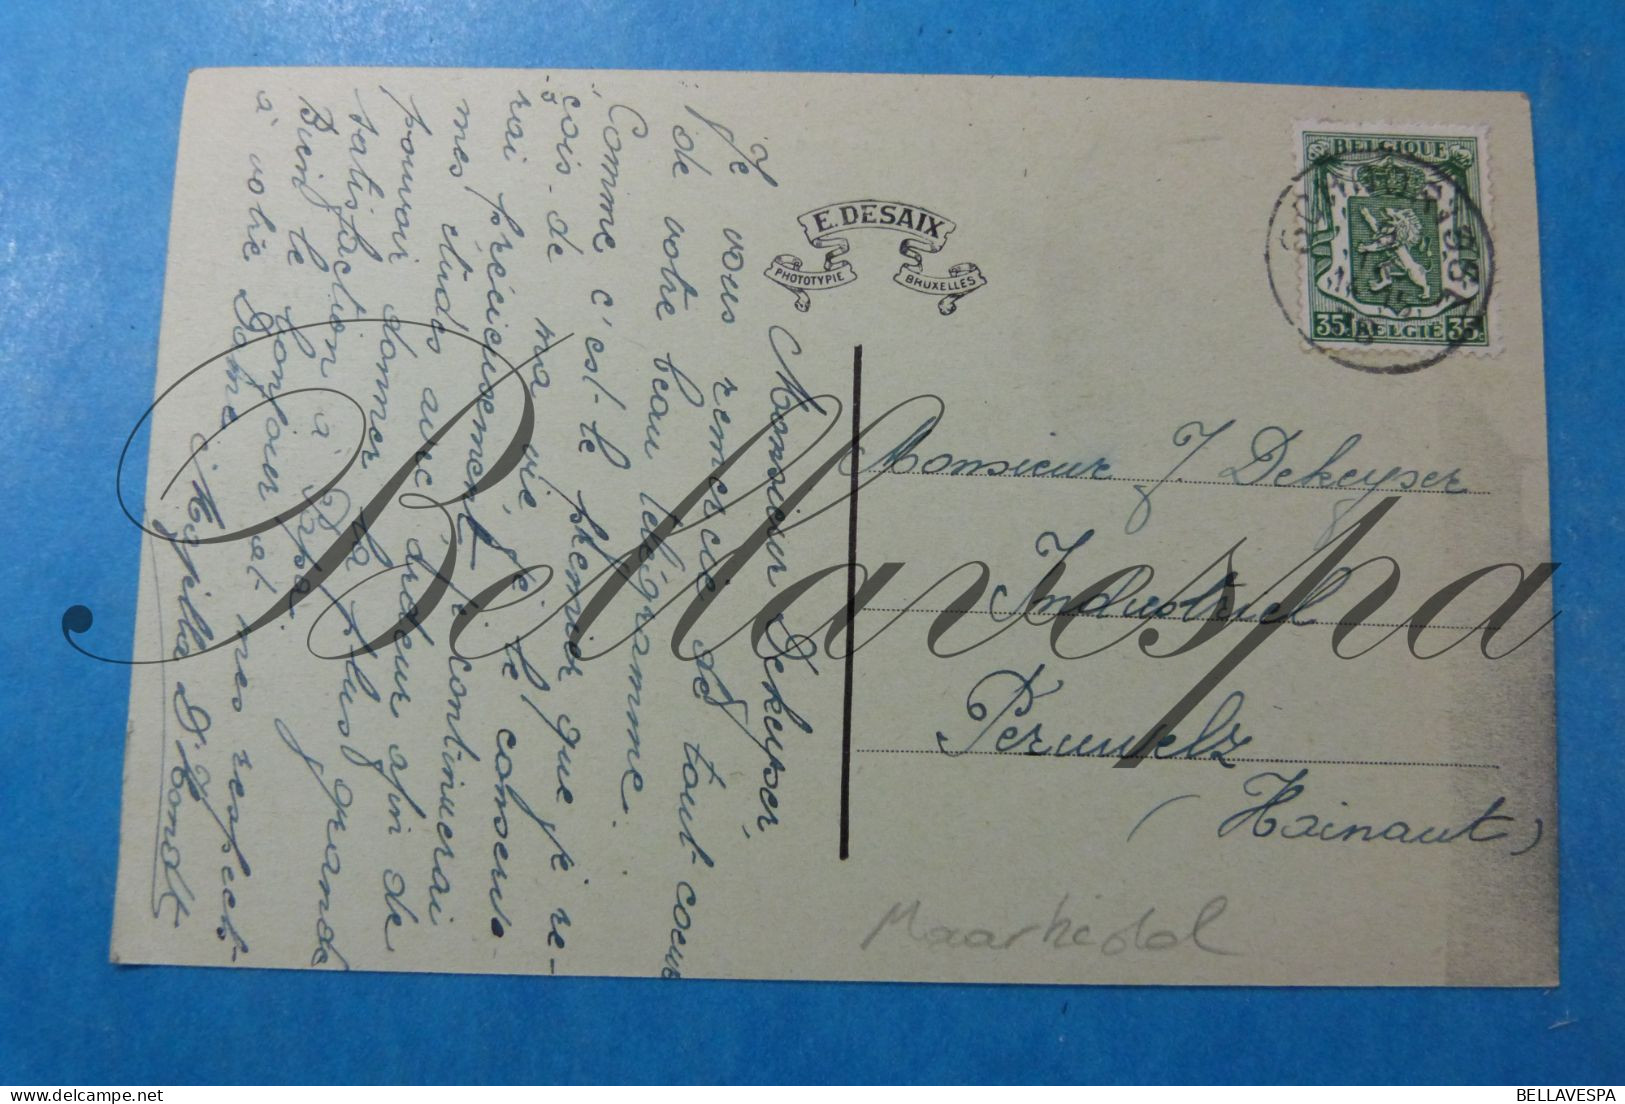 Monsieur Dekeyser,
Je vous remercie de tout coeur
de votre beau télégramme.
Comme c'est le premier que je re-
çois de ma vie, je le conserve-
rai précieusement. Je continuerai
mes études avec ardeur afin de
pouvoir donner la plus grande
satisfaction à Papa.
Bien le bonjour et mes respects
à votre Dame.
D'Hondt
E. DESAIX
PHOTOTYPIE BRUXELLES
BELGIQUE
35c BELGIE 35c
Monsieur J. Dekeyser
Industriel
Peruwelz
(Hainaut)
Maarkedal
Bellavespa
BELLAVESPA